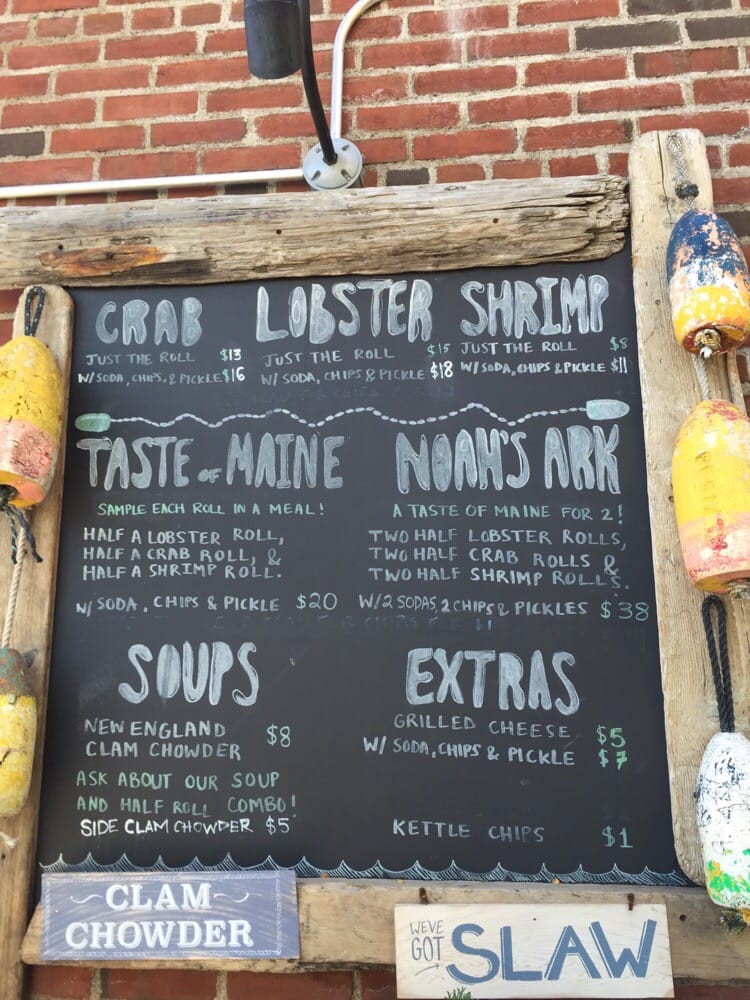 CRAB
JUST THE ROLL $13
W/ SODA, CHIPS, & PICKLE $16
LOBSTER
JUST THE ROLL $15
W/ SODA, CHIPS & PICKLE $18
SHRIMP
JUST THE ROLL $8
W/ SODA, CHIPS & PICKLE $11
TASTE OF MAINE
SAMPLE EACH ROLL IN A MEAL!
HALF A LOBSTER ROLL,
HALF A CRAB ROLL, &
HALF A SHRIMP ROLL.
W/ SODA, CHIPS & PICKLE $20
NOAH'S ARK
A TASTE OF MAINE FOR 2!
TWO HALF LOBSTER ROLLS,
TWO HALF CRAB ROLLS &
TWO HALF SHRIMP ROLLS.
W/2 SODAS, 2 CHIPS & PICKLES $38
SOUPS
NEW ENGLAND
CLAM CHOWDER $8
ASK ABOUT OUR SOUP
AND HALF ROLL COMBO!
SIDE CLAM CHOWDER $5
EXTRAS
GRILLED CHEESE $5
W/ SODA, CHIPS & PICKLE $7
KETTLE CHIPS $1
CLAM
CHOWDER
WE'VE
GOT
SLAW